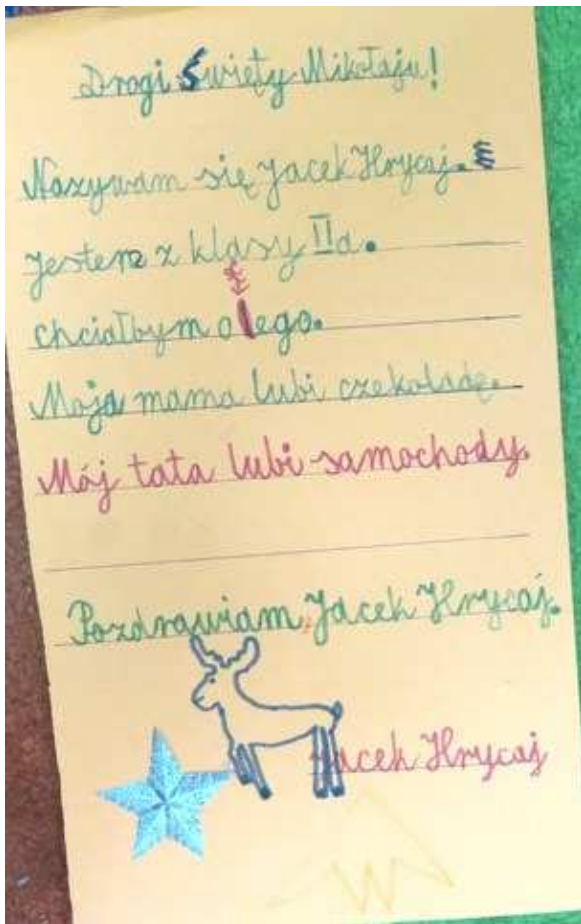 Drogi Święty Mikołaju!
Nazywam się Jacek Hrycaj.
Jestem z klasy IIa.
chciałbym o lego.
Moja mama lubi czekoladę.
Mój tata lubi samochody.
Pozdrawiam, Jacek Hrycaj.
Jacek Hrycaj